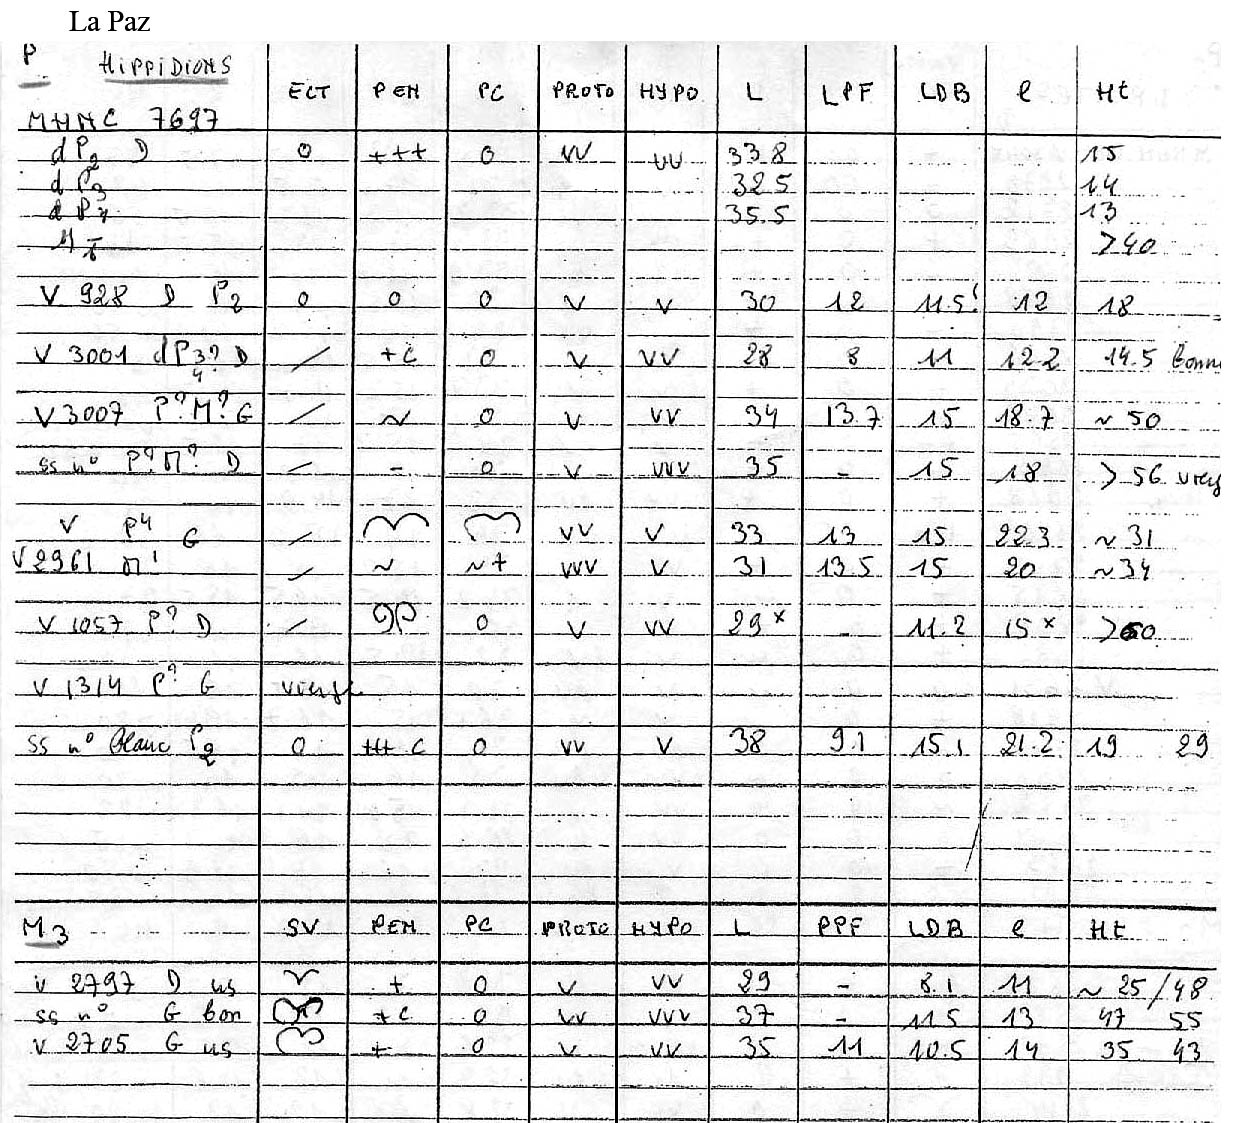 La Paz
P HIPPIDIONS ECT PEN PC PROTO HYPO L LPF LDB l Ht
MHNC 7697
dP2 D O +++ O VV VV 33.8 15
dP3 32.5 14
dP4 35.5 13
>40
V 928 D P2 O O O V V 30 12 11.5! 12 18
V 3001 dP3? D / +c O V VV 28 8 11 12.2 14.5 bonn
4
V 3007 P? M? G / ~ O V VV 34 13.7 15 18.7 ~ 50
ss n° P? M? D / - O V VVV 35 - 15 18 > 56
V P4 G / VV V 33 13 15 22.3 ~ 31
V 2961 M1 / ~ ~+ VVV V 31 13.5 15 20 ~ 34
V 1057 P? D / O V VV 29 x - 11.2 15 x >60
V 1314 P? G vierge
ss n° blanc P2 O +++ c O VV V 38 9.1 15.1 21.2 19 29
M3 SV PEN PC PROTO HYPO L PPF LDB l Ht
V 2797 D us V + O V VV 29 - 8.1 11 ~ 25/48
ss n° G bon +c O VV VVV 37 - 11.5 13 47 55
V 2705 G us + O V VV 35 11 10.5 14 35 43